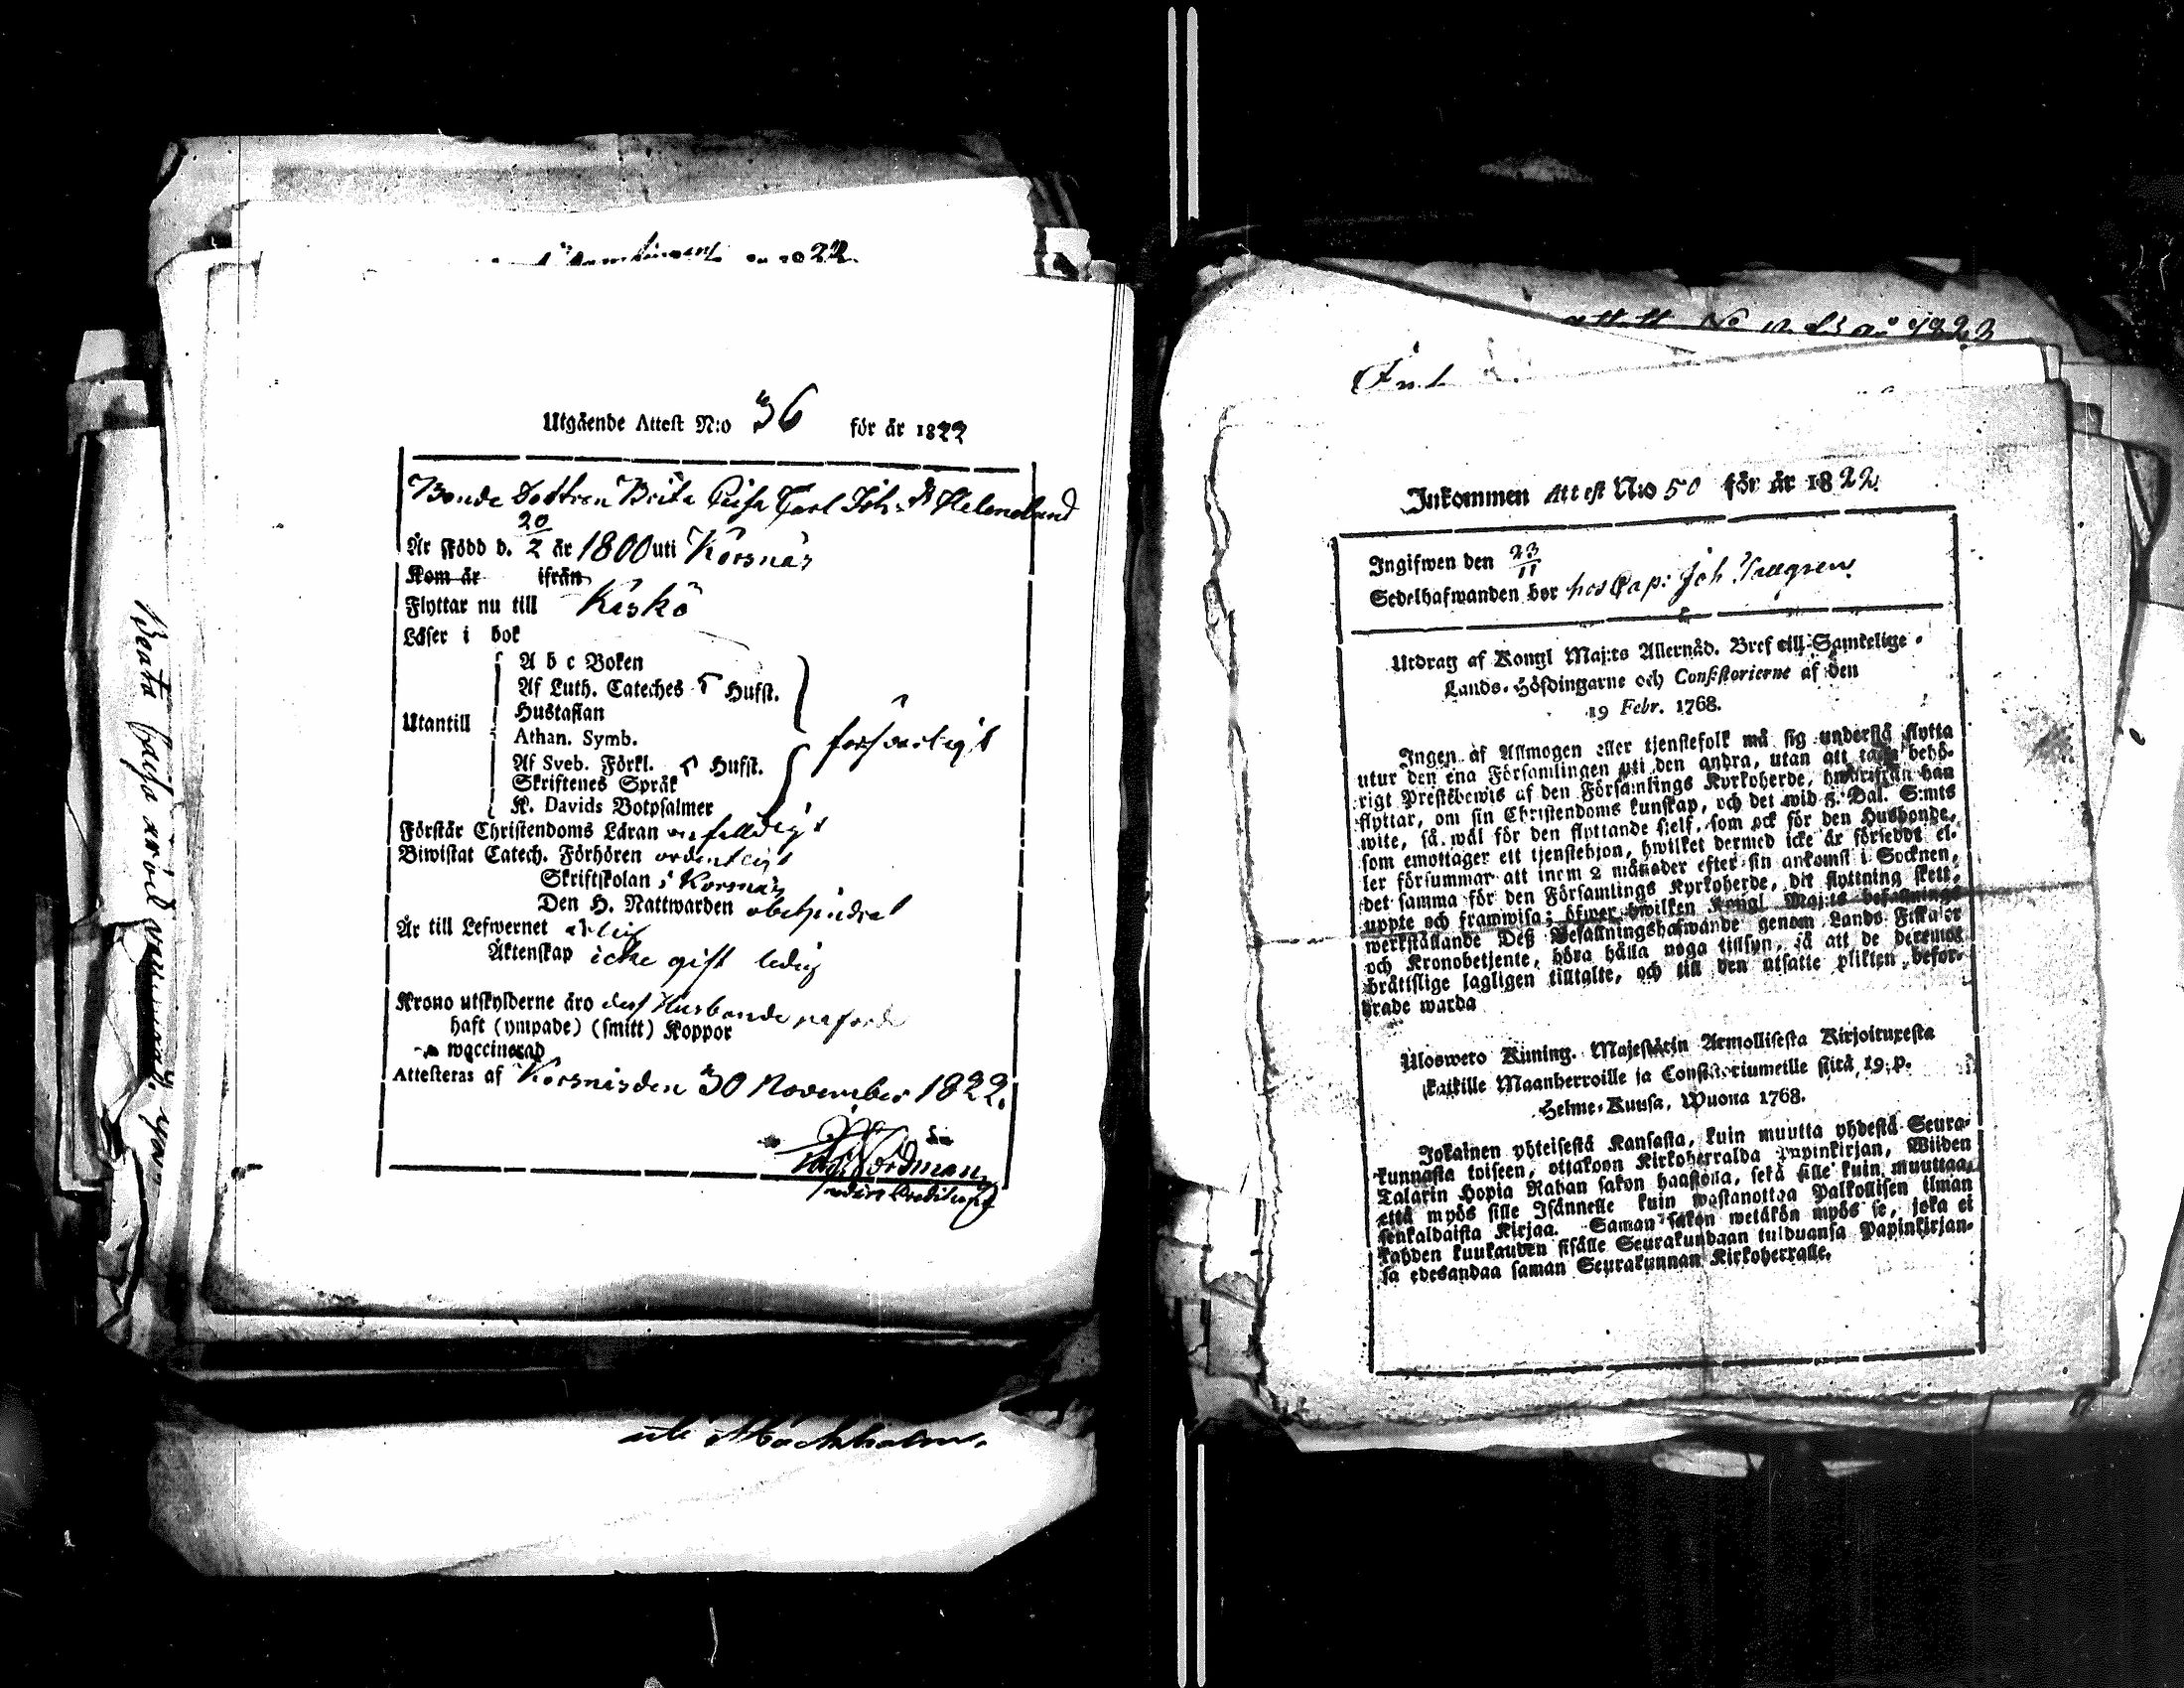 22.
Utgående Attest N:o 36 för år 1822
Bonde Dottren Brita Caisa Carl Joh: Dr Helenelund
Är född d. 20/2 år 1800 uti Korsnäs
Kom år ifrån
Flyttar nu till Kaskö
Läser i bok
A b c Boken
Af Luth. Cateches 5 Hufst.
Hustaflan
Utantill
Athan. Symb.
försvarligt
Af Sveb. Förkl. 5 Hufst.
Skriftenes Språk
K. Davids Botpsalmer
Förstår Christendoms Läran enfalldigt
Biwistat Catech. Förhören ordenteligt
Skriftskolan i Korsnäs
Den H. Nattwarden obehindrat
Är till Lefwernet ärlig
Äktenskap icke gift ledig
Krono utskylderne äro dess Husbonde påförde
haft (ympade) (smitt) Koppor
waccinerad
Attesteras af Korsnäs den 30 November 1822.
Nordman
Beata Cajsa
ute Stockholm.
attest No 1823
Inkommen Attest N:o 50 för år 1822.
Ingifwen den 23/11
Sedelhafwanden bor hos Cap: Joh Tallgren
Utdrag af Kongl Maj:ts Allernåd. Bref till Samtelige
Lands-Höfdingarne och Consistorierne af den
19 Febr. 1768.
Ingen af Allmogen eller tjenstefolk må sig understå flytta
utur den ena Församlingen uti den andra, utan att taga behö-
rigt Prestebewis af den Församlings Kyrkoherde, hwarifrån han
flyttar, om sin Christendoms kunskap, och det wid 5. Dal. S:mts
wite, så wäl för den flyttande sielf, som ock för den Husbonde,
som emottager ett tjenstehjon, hwilket dermed icke är försedt el-
ler försummar att inom 2 månader efter sin ankomst i Socknen,
det samma för den Församlings Kyrkoherde, dit flyttning skett,
uppte och framwisa; öfwer hwilken Kongl Maj:ts befallnings
werkställande Deß Befallningshafwande genom Lands Fiskaler
och Kronobetjente, böra hålla noga tillsyn, så att de deremot
bråttslige lagligen tilltalte, och till den utsatte plikten befor-
drade warda
Ulosweto Kuning. Majestätin Armollisesta Kirjoituxesta
kaikille Maanherroille ja Consistoriumeille siitä 19. p.
Helme-Kuusa, Wuona 1768.
Jokainen yhteisestä Kansasta, kuin muutta yhdestä Seura-
kunnasta toiseen, ottakoon Kirkoherralda Papinkirjan, Wiiden
Talarin Hopia Rahan sakon haastolla, sekä sille kuin muuttaa,
että myös sille Isännelle kuin wastanottaa Palkollisen ilman
senkaldaista Kirjaa. Saman sakon wetäkön myös se, joka ei
kahden kuukauden sisälle Seurakundaan tulduansa Papinkirjan-
sa edesandaa saman Seurakunnan Kirkoherralle.